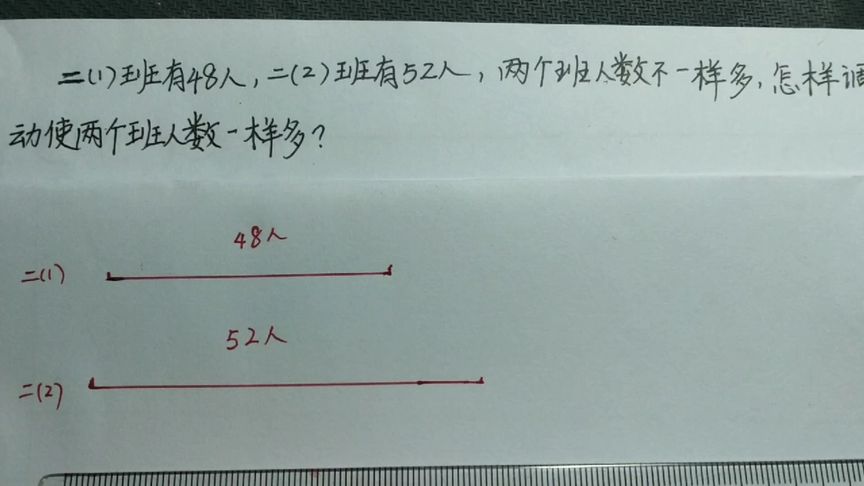 二(1)班有48人,二(2)班有52人,两个班人数不一样多,怎样调
动使两个班人数一样多?
48人
二(1)
52人
二(2)